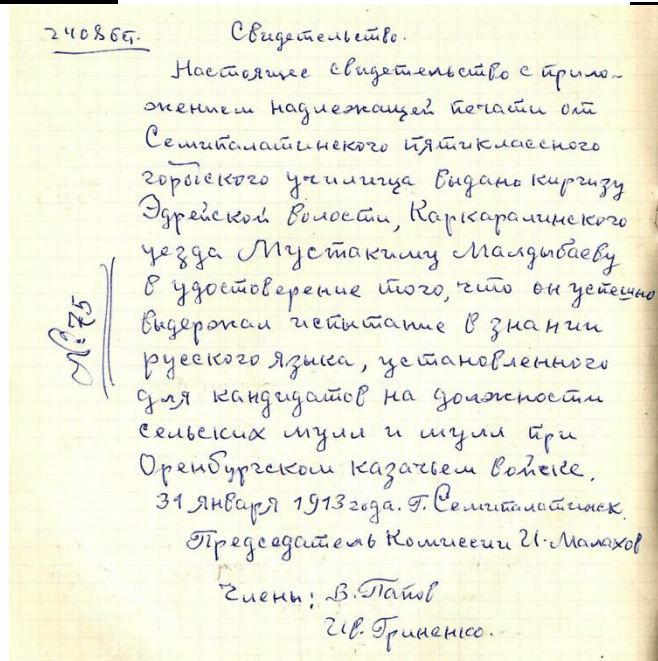 24086т. Свидетельство.
Настоящее свидетельство с прило-
жением надлежащей печати от
Семипалатинского пятиклассного
городского училища выдано киргизу
Эдрейской волости, Каркаралинского
уезда Мустакиму Малдыбаеву
в удостоверение того, что он успешно
выдержал испытание в знании
русского языка, установленного
для кандидатов на должности
сельских мулл и мулл при
Оренбургском казачьем войске.
31 января 1913 года. Г. Семипалатинск.
Председатель Комиссии И. Малахов
Члены: В. Папов
Ив. Гриненко.
№ 75